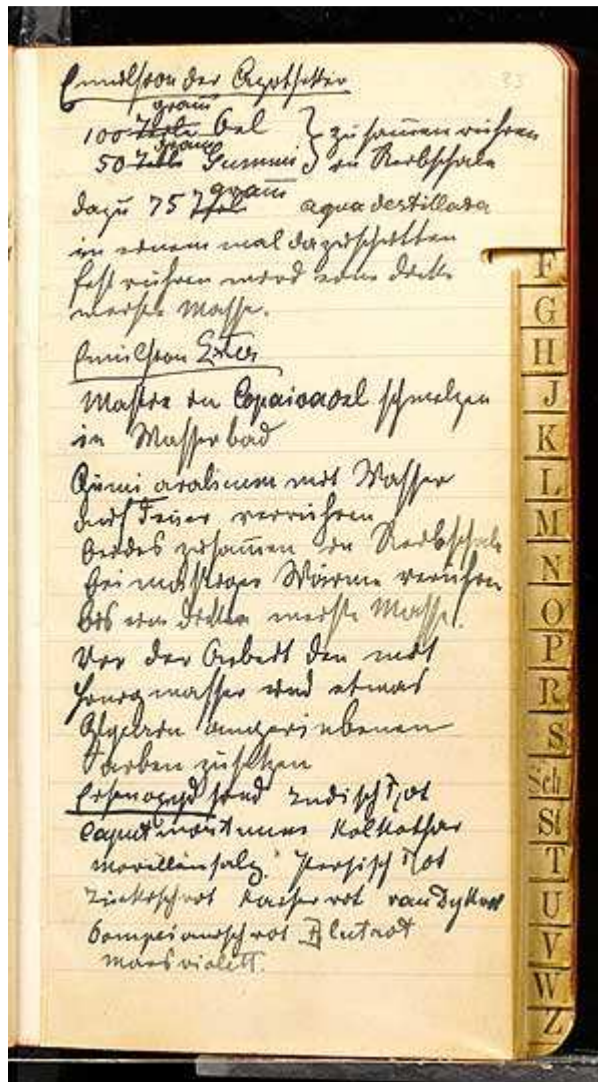 Emulsion der Apotheker
83
gram
100 Teile Oel } zusamen rühren
gram
50 Teile Gummi } in Reibschale
gram
dazu 75 Teile aqua destillata
in einem mal dazuschütten
fest rühren wird eine dicke
weisse Masse.
Emulsion
Mastix in Copaivaoel schmelzen
in Wasserbad
Gumi arabicum mit Wasser
auf Feuer verrühren
beides zusamen in Reibschale
bei mässiger Wärme verrühren
bis eine dicke weisse Masse.
Vor der Arbeit den mit
Honigwasser und etwas
Glycerin angeriebenen
Farben zusetzen
Eisenoxyd sind Indisch rot
Caput mortuum Kolkothar
Persisch rot
rot van Dyk rot
Pompeianisch rot Blutrot
Marsviolett.
F
G
H
J
K
L
M
N
O
P
R
S
Sch
St
T
U
V
W
Z